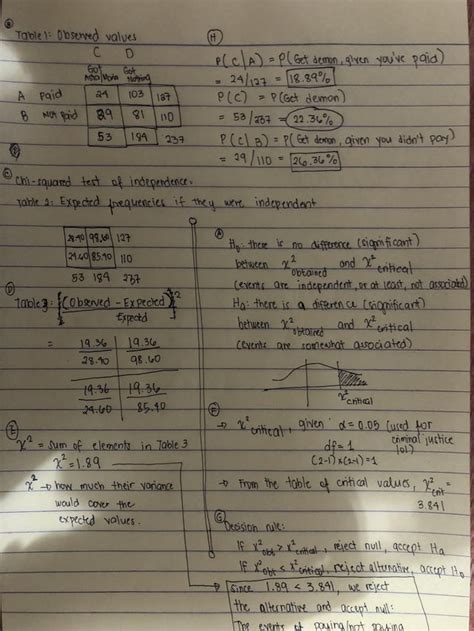 Table 1: Observed values
C D
Got Got
Nothing
A Paid 24 103 127
B Not Paid 29 81 110
53 184 237
C Chi-squared test of independence.
Table 2: Expected frequencies if they were independent
28.40 98.60 127
24.60 85.40 110
53 184 237
D
Table 3 = [(Observed - Expected)²
Expected
= 19.36 19.36
28.40 98.60
19.36 19.36
24.60 85.40
E
χ² = sum of elements in Table 3
χ² = 1.89
χ² → how much their variance
would cover the
expected values.
H
P(C|A) = P(Get demon, given you've paid)
= 24/127 = 18.89%
P(C) = P(Get demon)
= 53/237 = 22.36%
P(C|B) = P(Get demon, given you didn't pay)
= 29/110 = 26.36%
A
H₀: there is no difference (significant)
between χ² obtained and χ² critical
(events are independent, or at least, not associated)
Ha: there is a difference (significant)
between χ² obtained and χ² critical
(events are somewhat associated)
χ² critical
F
→ χ² critical, given: α = 0.05 (used for
criminal justice
lol)
df = 1
(2-1)×(2-1) = 1
→ From the table of critical values, χ² crit =
3.841
G
Decision rule:
If χ² obt > χ² critical, reject null, accept Ha
If χ² obt < χ² critical, reject alternative, accept H₀
Since 1.89 < 3.841, we reject
the alternative and accept null:
The events of paying/not paying